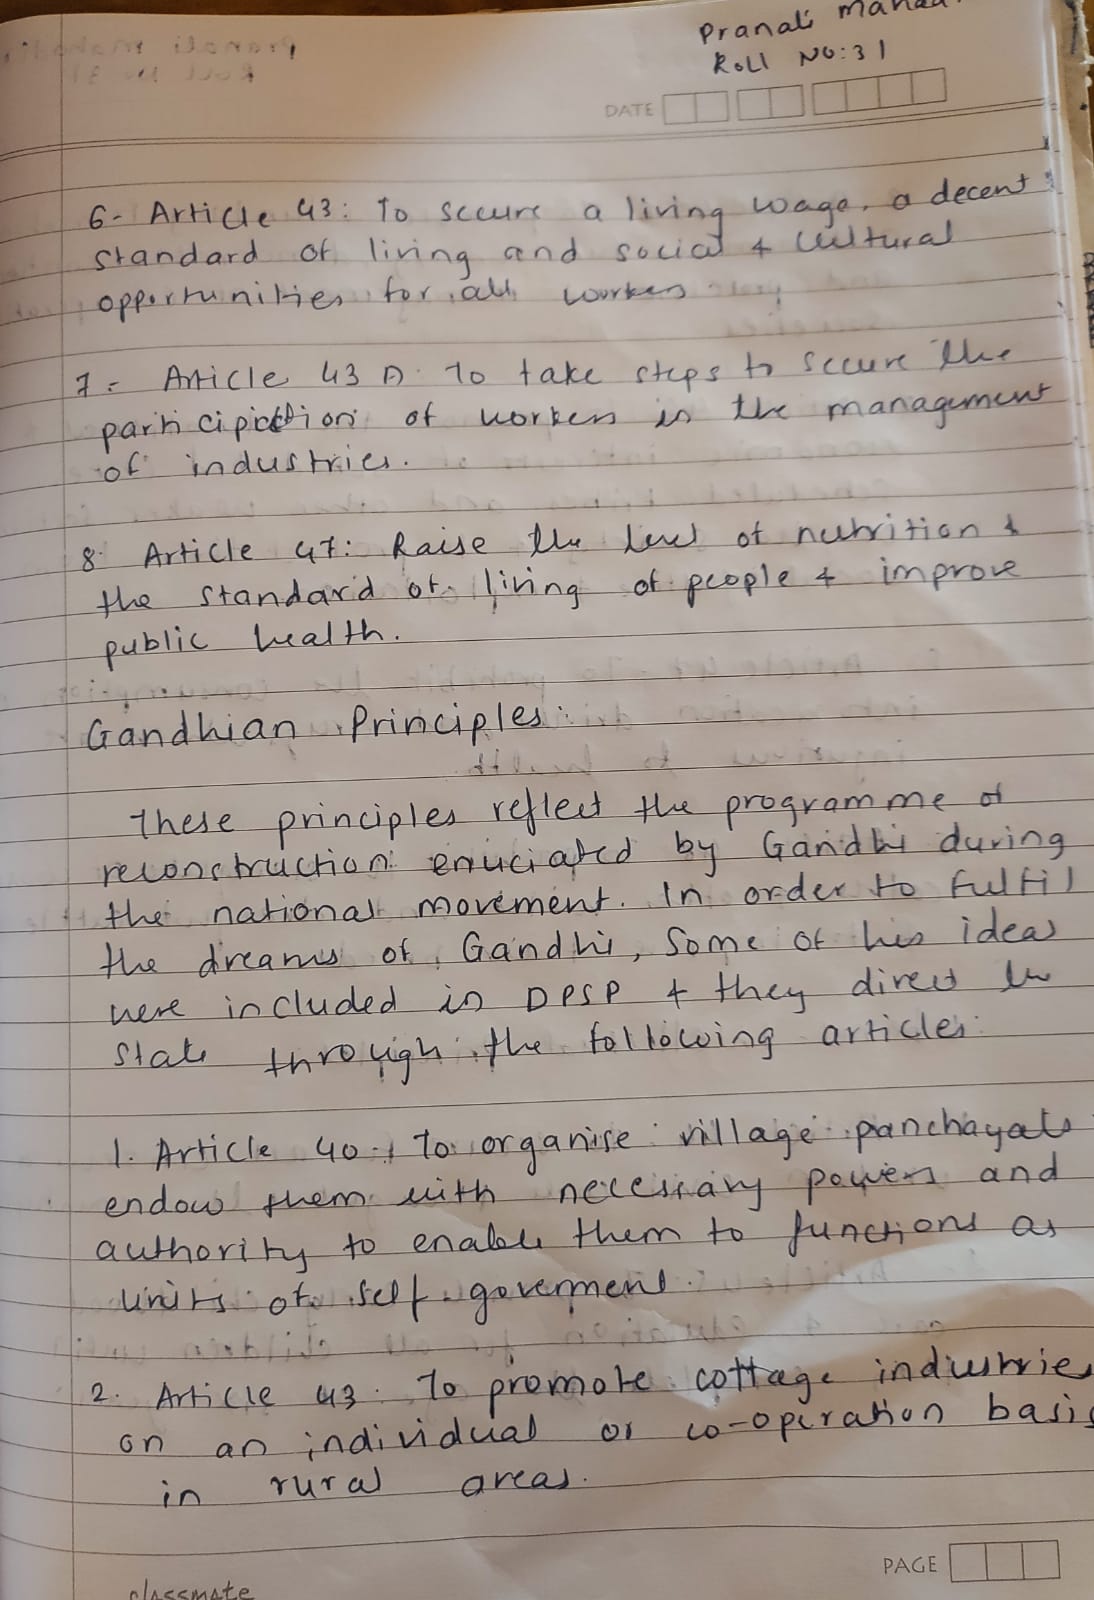 Pranali
Roll No: 31
DATE
6- Article 43: To secure a living wage, a decent
standard of living and social & cultural
opportunities for all workers
7- Article 43 A: To take steps to secure the
participation of workers in the management
of industries.
8. Article 47: Raise the level of nutrition &
the standard of living of people & improve
public health.
Gandhian Principles:
These principles reflect the programme of
reconstruction enuciated by Gandhi during
the national movement. In order to fulfil
the dreams of Gandhi, some of his ideas
were included in DPSP & they direct the
State through the following articles:
1. Article 40: To organise village panchayats
endow them with necessary powers and
authority to enable them to functions as
units of self-goverment.
2. Article 43: To promote cottage industries
on an individual or co-operation basis
in rural areas.
PAGE
classmate